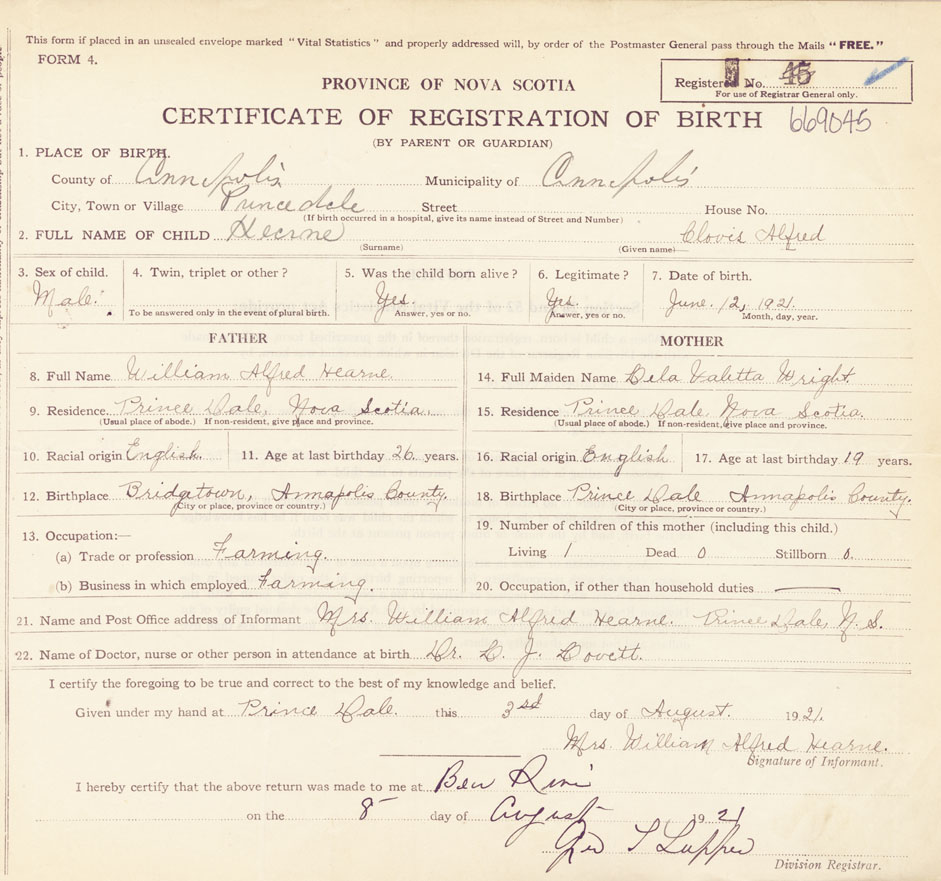 This form if placed in an unsealed envelope marked "Vital Statistics" and properly addressed will, by order of the Postmaster General pass through the Mails "FREE."
FORM 4.
PROVINCE OF NOVA SCOTIA
Registered No. 45
For use of Registrar General only.
CERTIFICATE OF REGISTRATION OF BIRTH 669045
(BY PARENT OR GUARDIAN)
1. PLACE OF BIRTH.
County of Annapolis Municipality of Annapolis
City, Town or Village Princedale Street House No.
(If birth occurred in a hospital, give its name instead of Street and Number)
2. FULL NAME OF CHILD Hearne Clovis Alfred
(Surname) (Given name)
3. Sex of child. 4. Twin, triplet or other? 5. Was the child born alive? 6. Legitimate? 7. Date of birth.
Male. Yes. Yes. June. 12, 1921.
To be answered only in the event of plural birth. Answer, yes or no. Answer, yes or no. Month, day, year.
FATHER MOTHER
8. Full Name William Alfred Hearne. 14. Full Maiden Name Valetta Wright.
9. Residence. Prince Dale, Nova Scotia. 15. Residence Prince Dale, Nova Scotia.
(Usual place of abode.) If non-resident, give place and province. (Usual place of abode.) If non-resident, give place and province.
10. Racial origin English. 11. Age at last birthday 26 years. 16. Racial origin English 17. Age at last birthday 19 years.
12. Birthplace Bridgetown, Annapolis County. 18. Birthplace Prince Dale Annapolis County.
(City or place, province or country.) (City or place, province or country.)
19. Number of children of this mother (including this child.)
13. Occupation:—
(a) Trade or profession Farming. Living 1 Dead 0 Stillborn 0.
(b) Business in which employed Farming. 20. Occupation, if other than household duties —
21. Name and Post Office address of Informant Mrs. William Alfred Hearne. Prince Dale, N. S.
22. Name of Doctor, nurse or other person in attendance at birth Dr. L. J. Lovett.
I certify the foregoing to be true and correct to the best of my knowledge and belief.
Given under my hand at Prince Dale. this 3rd day of August. 1921.
Mrs. William Alfred Hearne.
Signature of Informant.
I hereby certify that the above return was made to me at
on the 8 day of August 1921
Division Registrar.